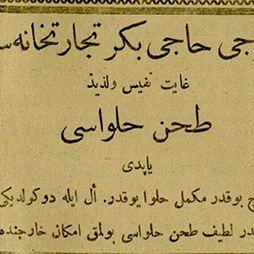 جی حاجی بكر تجارتخانه‌س
غايت نفيس ولذيذ
طحن حلواسی
ياپدی
بوقدر مكمل حلوا يوقدر. أل ايله دوكولديكی
لطيف طحن حلواسی بولمق امكان خارجنده